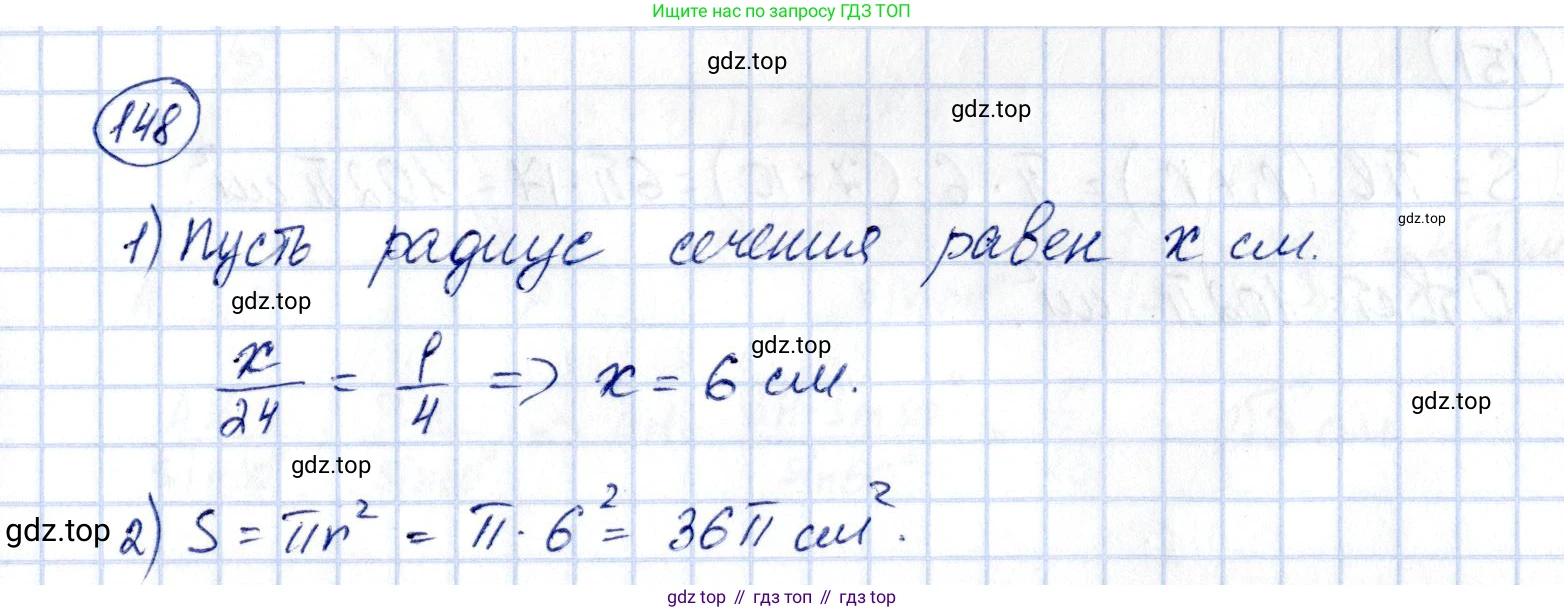 Ищите нас по запросу ГДЗ ТОП
gdz.top
gdz.top
148
gdz.top
1) Пусть радиус сечения равен x см.
gdz.top
x/24 = 1/4 => x = 6 см.
gdz.top
gdz.top
gdz.top
gdz.top
2) S = πr² = π · 6² = 36π см².
gdz.top // гдз топ // гдз top